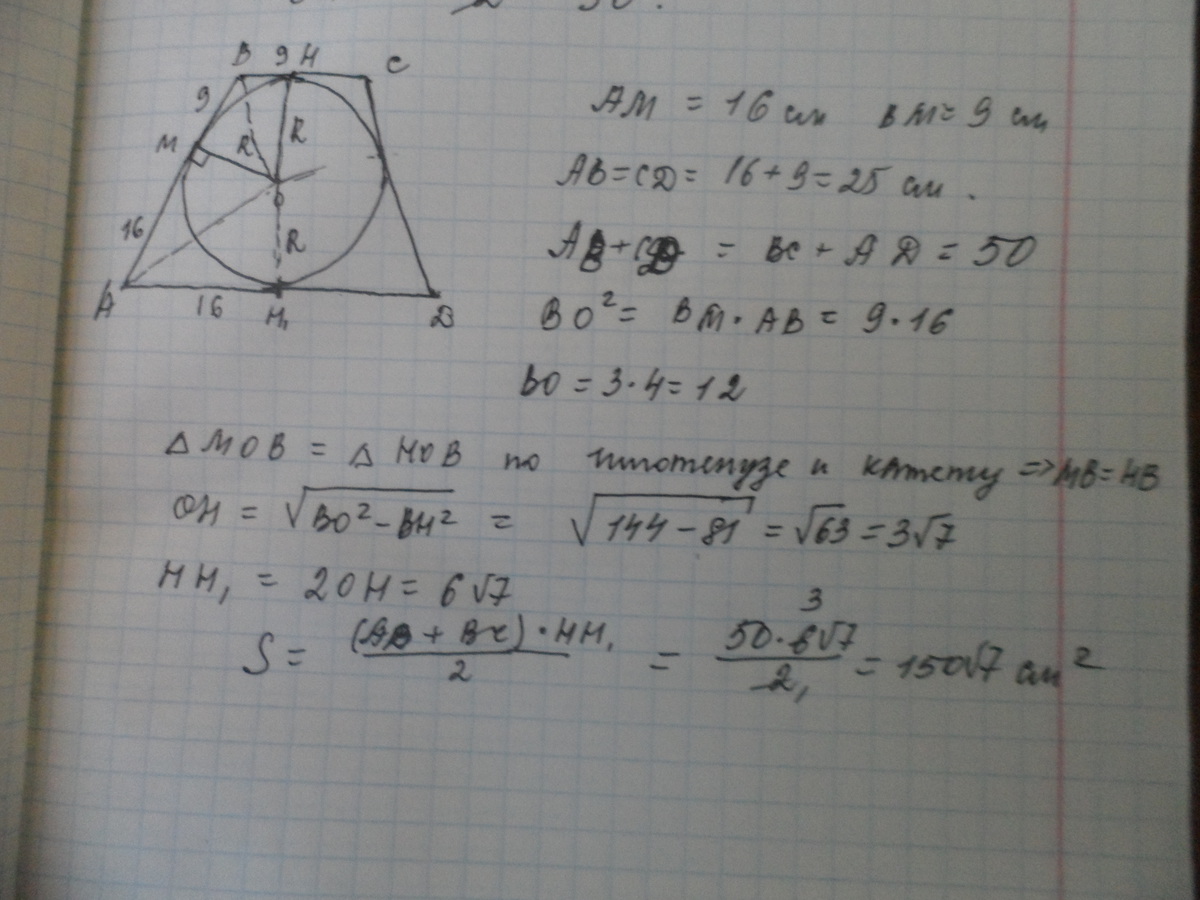 B 9 H C
9
M R R
O
16 R
A 16 H₁ D
AM = 16 см BM = 9 см
AB = CD = 16 + 9 = 25 см.
AB + CD = BC + AD = 50
BO² = BM · AB = 9 · 16
BO = 3 · 4 = 12
△ MOB = △ HOB по гипотенузе и катету => MB = HB
OH = √BO² - BH² = √144 - 81 = √63 = 3√7
HH₁ = 2OH = 6√7
3
S = (AD + BC) · HH₁ / 2 = 50 · 6√7 / 2 = 150√7 см²